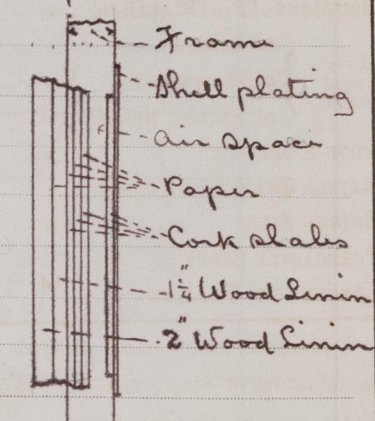 Frame
Shell plating
air space
Paper
Cork slabs
1¼" Wood Linin
2" Wood Linin